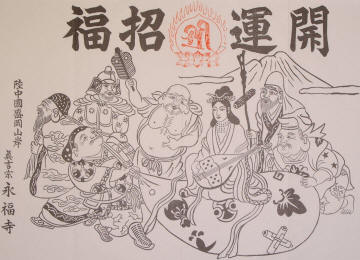 開運招福
陸中國盛岡山岸
真言宗
永福寺